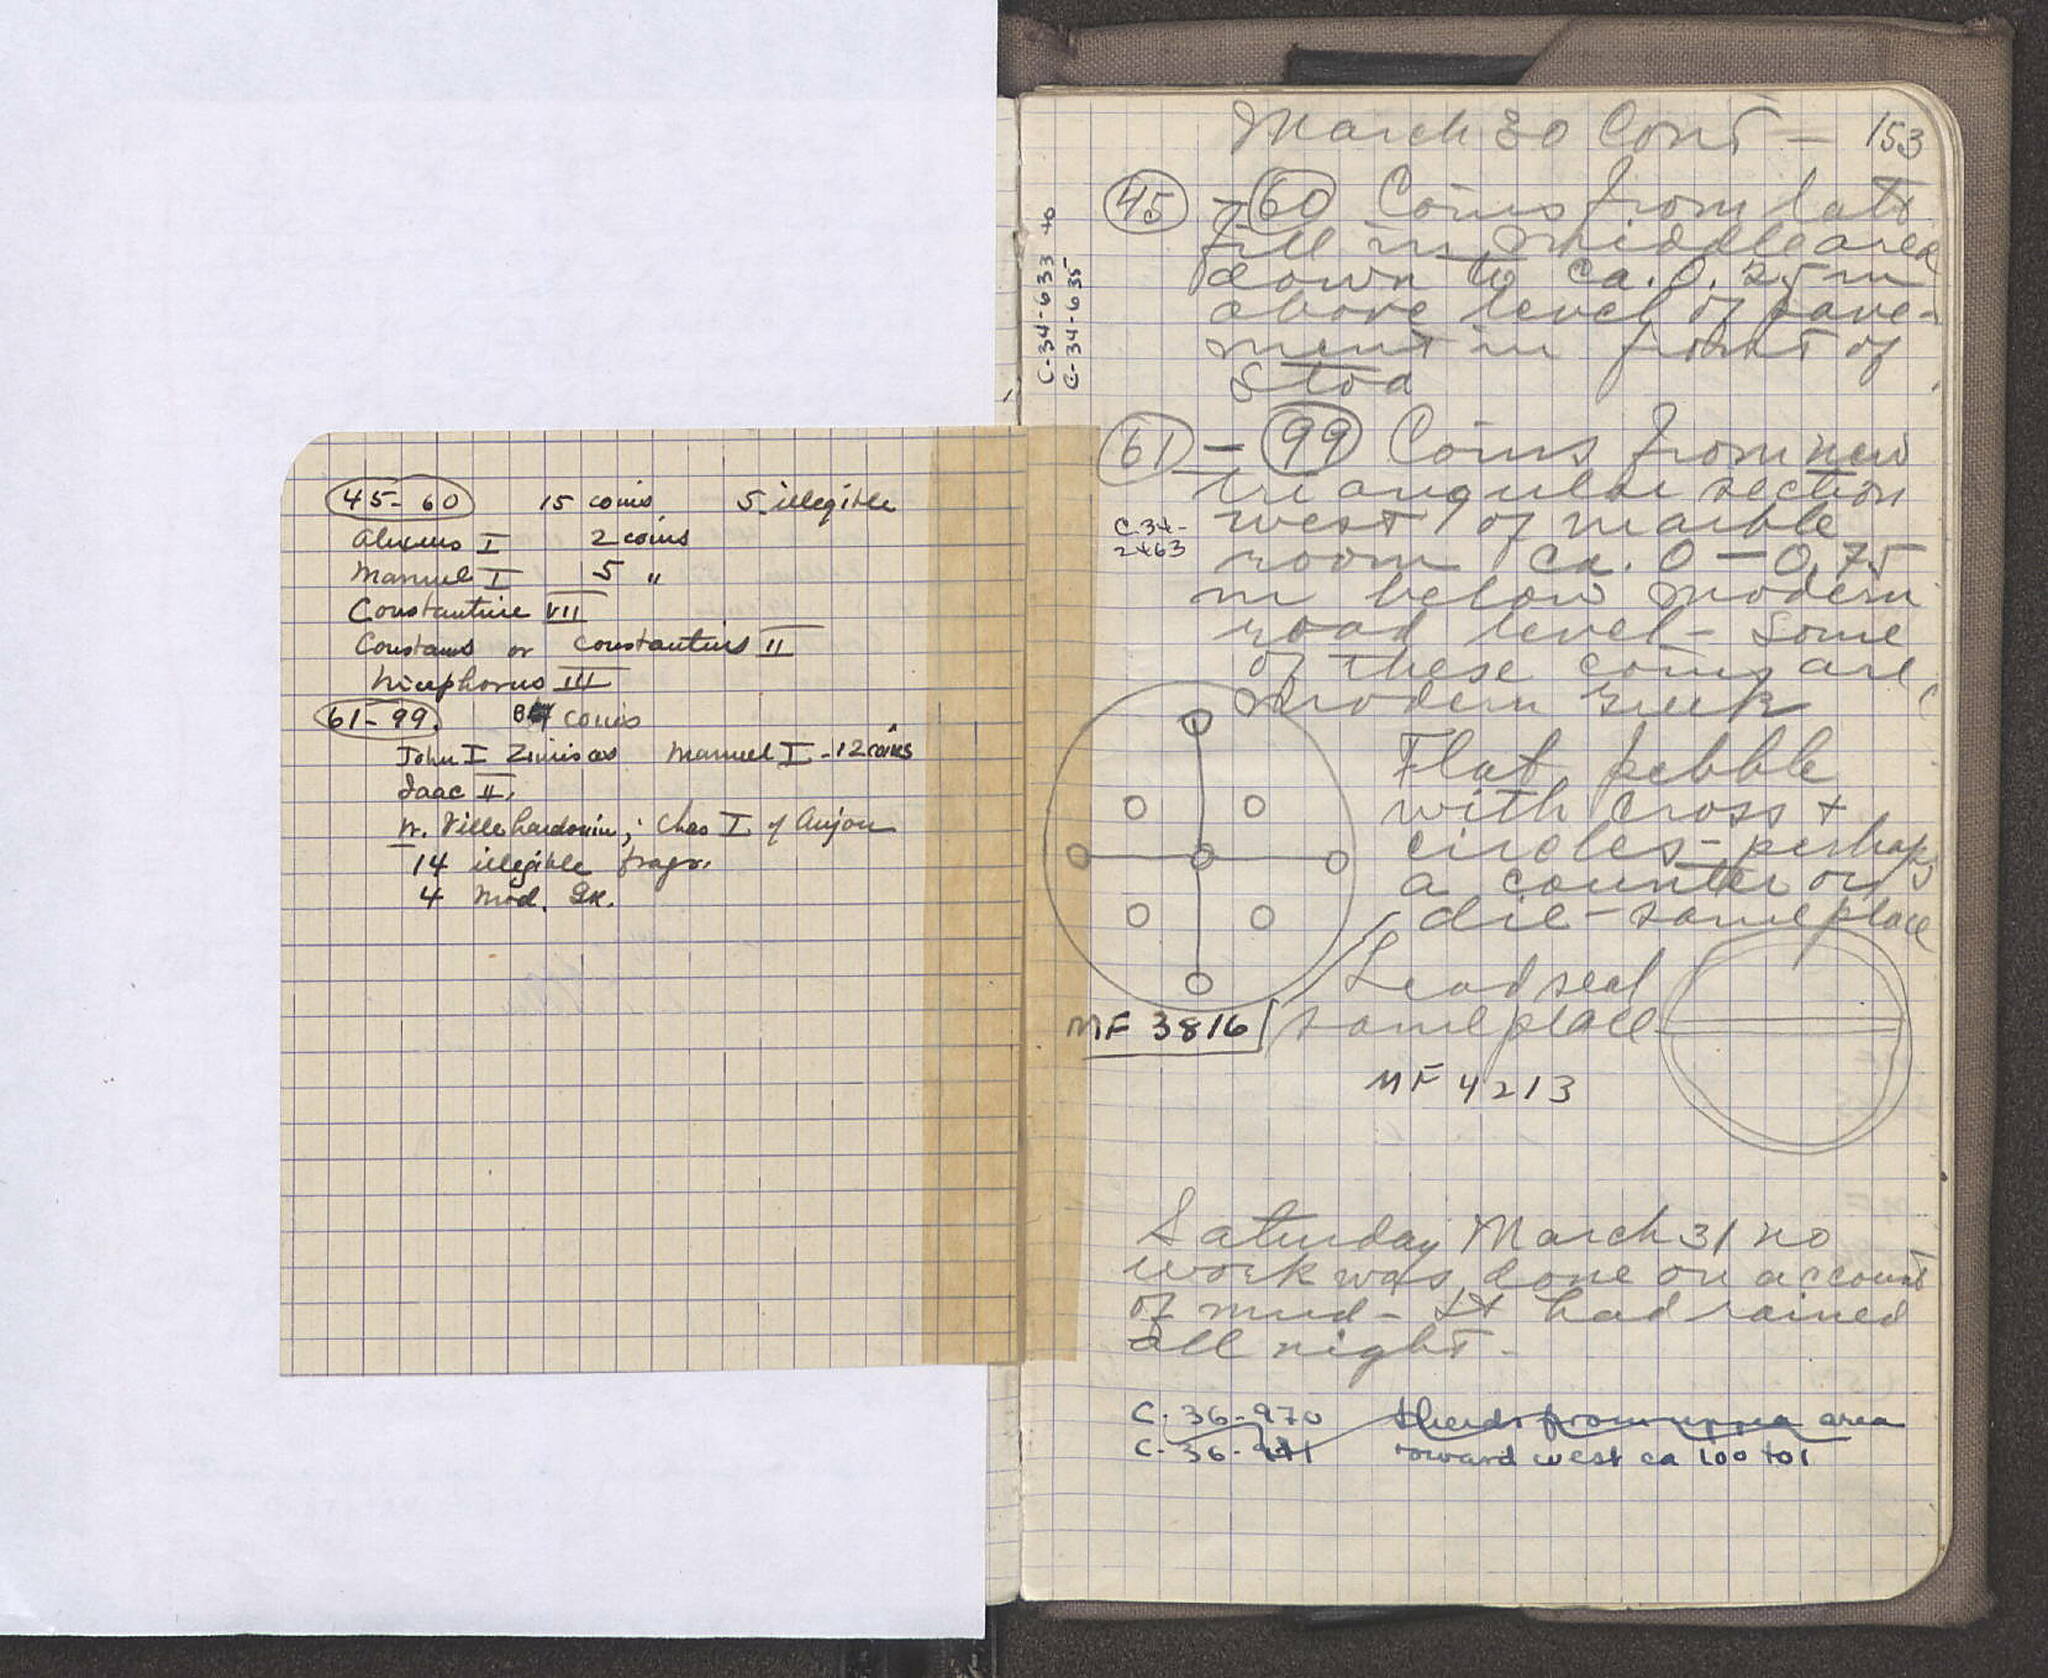 45-60 15 coins 5 illegible
Alexius I 2 coins
Manuel I 5 "
Constantine VII
Constans or Constantius II
Nicephorus III
61-99. coins
John I Zimisces Manuel I - 12 coins
Isaac II.
W. Villehardouin; Chas I of Anjou
14 illegible frags.
4 Mod. Gk.
March 30 Cont - 153
45 - 60 Coins from late
fill in middle area
down to ca. 0.25 m
above level of pave-
ment in front of
Stoa
C-34-633 to
C-34-635
61 - 99 Coins from new
triangular section
west of marble
room ca. 0-0.75
m below modern
road level - Some
of these coins are
modern Greek
C.34-
2463
Flat pebble
with cross +
circles - perhaps
a counter or
die - same place
MF 3816
Lead seal
same place
MF 4213
Saturday March 31 no
work was done on account
of mud - It had rained
all night -
C. 36-970 sherds from upper area
C. 36-971 toward west ca 100 to 1